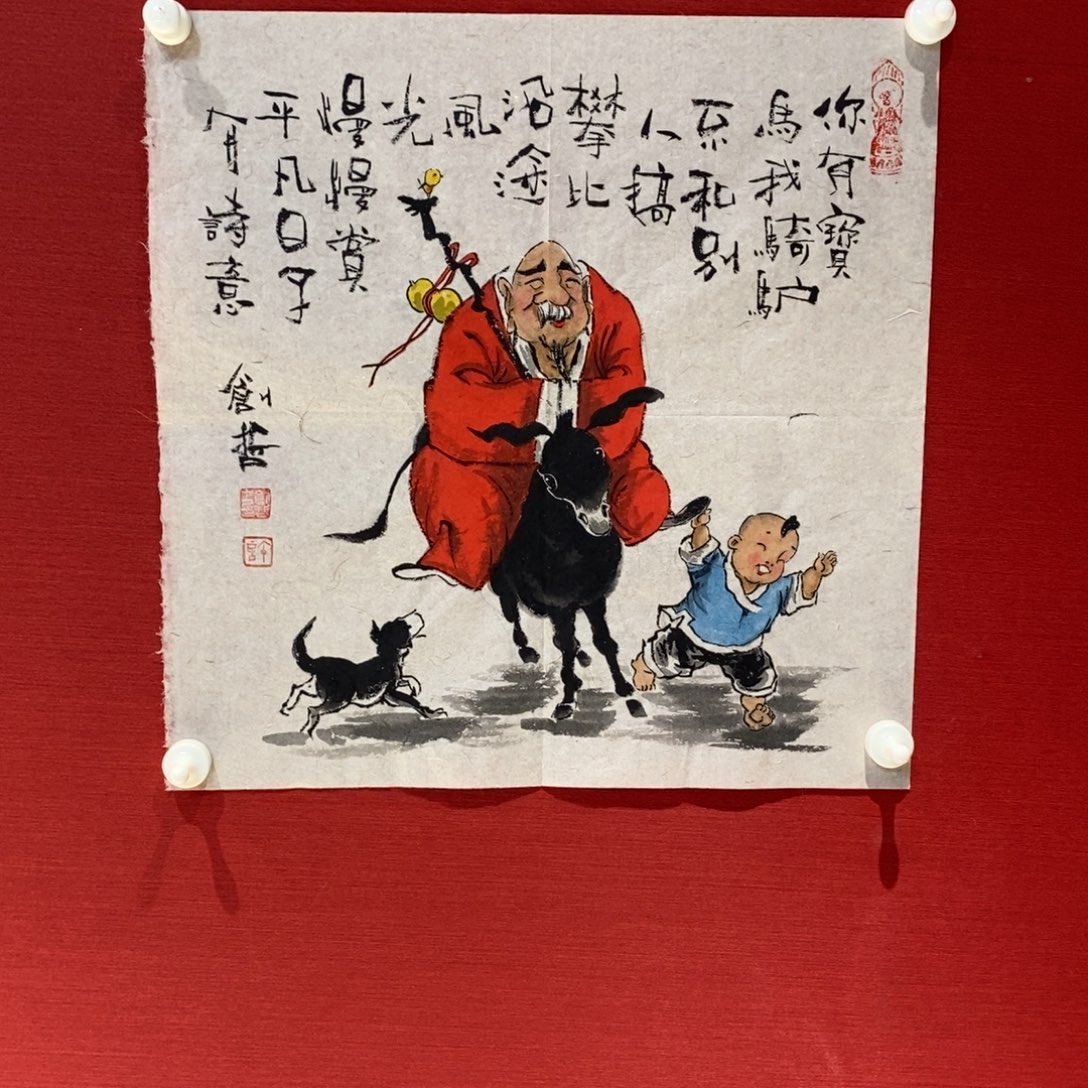 你有寶
馬我騎馿
不和别
人搞
攀比
沿途
風
光
慢慢賞
平凡日子
有詩意
創哲